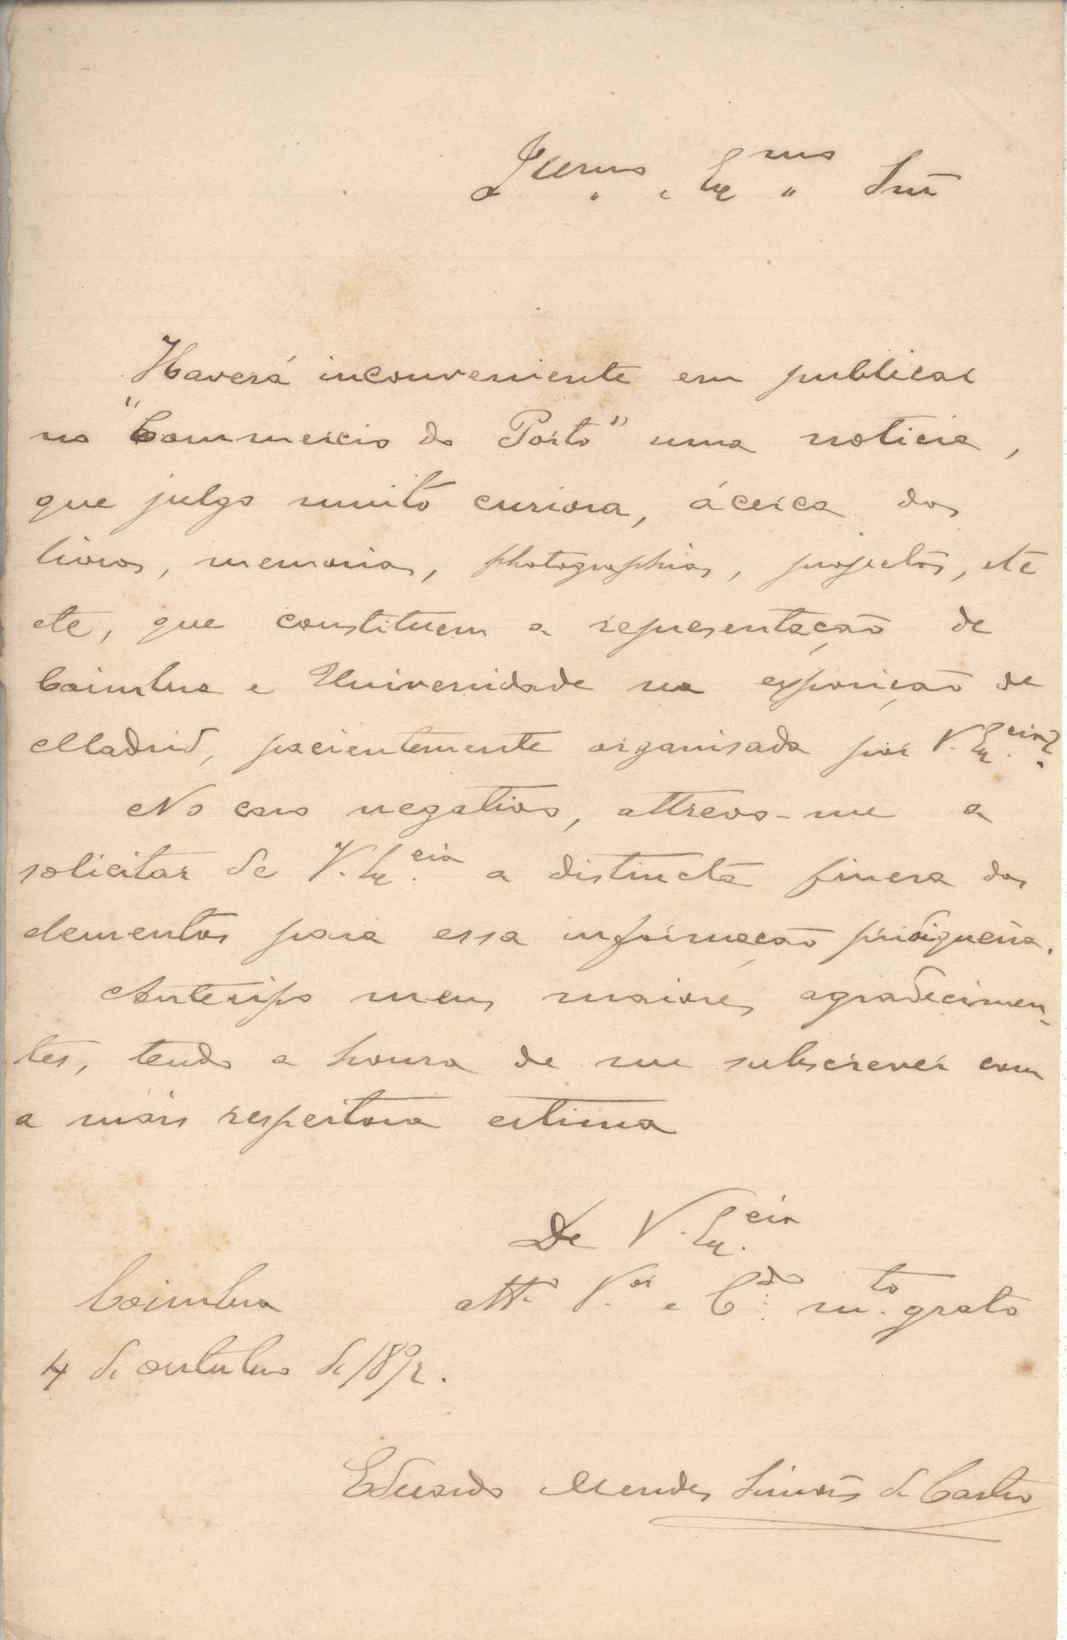 Illmo. e Exmo. Snr
Haverá inconveniente em publicar
no "Commercio do Porto" uma noticia,
que julgo muito curiosa, ácerca dos
livros, memorias, photographias, projectos, etc
etc, que constituem a representação de
Coimbra e Universidade na exposição de
Madrid, pacientemente organisada por V. Ex.cia?
No caso negativo, attrevo-me a
solicitar de V. Ex.cia a distincta fineza dos
elementos para essa informação
Antecipo meus maiores agradecimen-
tos, tendo a honra de me subscrever com
a mais respeitosa estima
De V. Ex.cia
att.o V.or e C.do m.to grato
Coimbra
4 de outubro de 1892.
Eduardo Mendes Simões de Castro